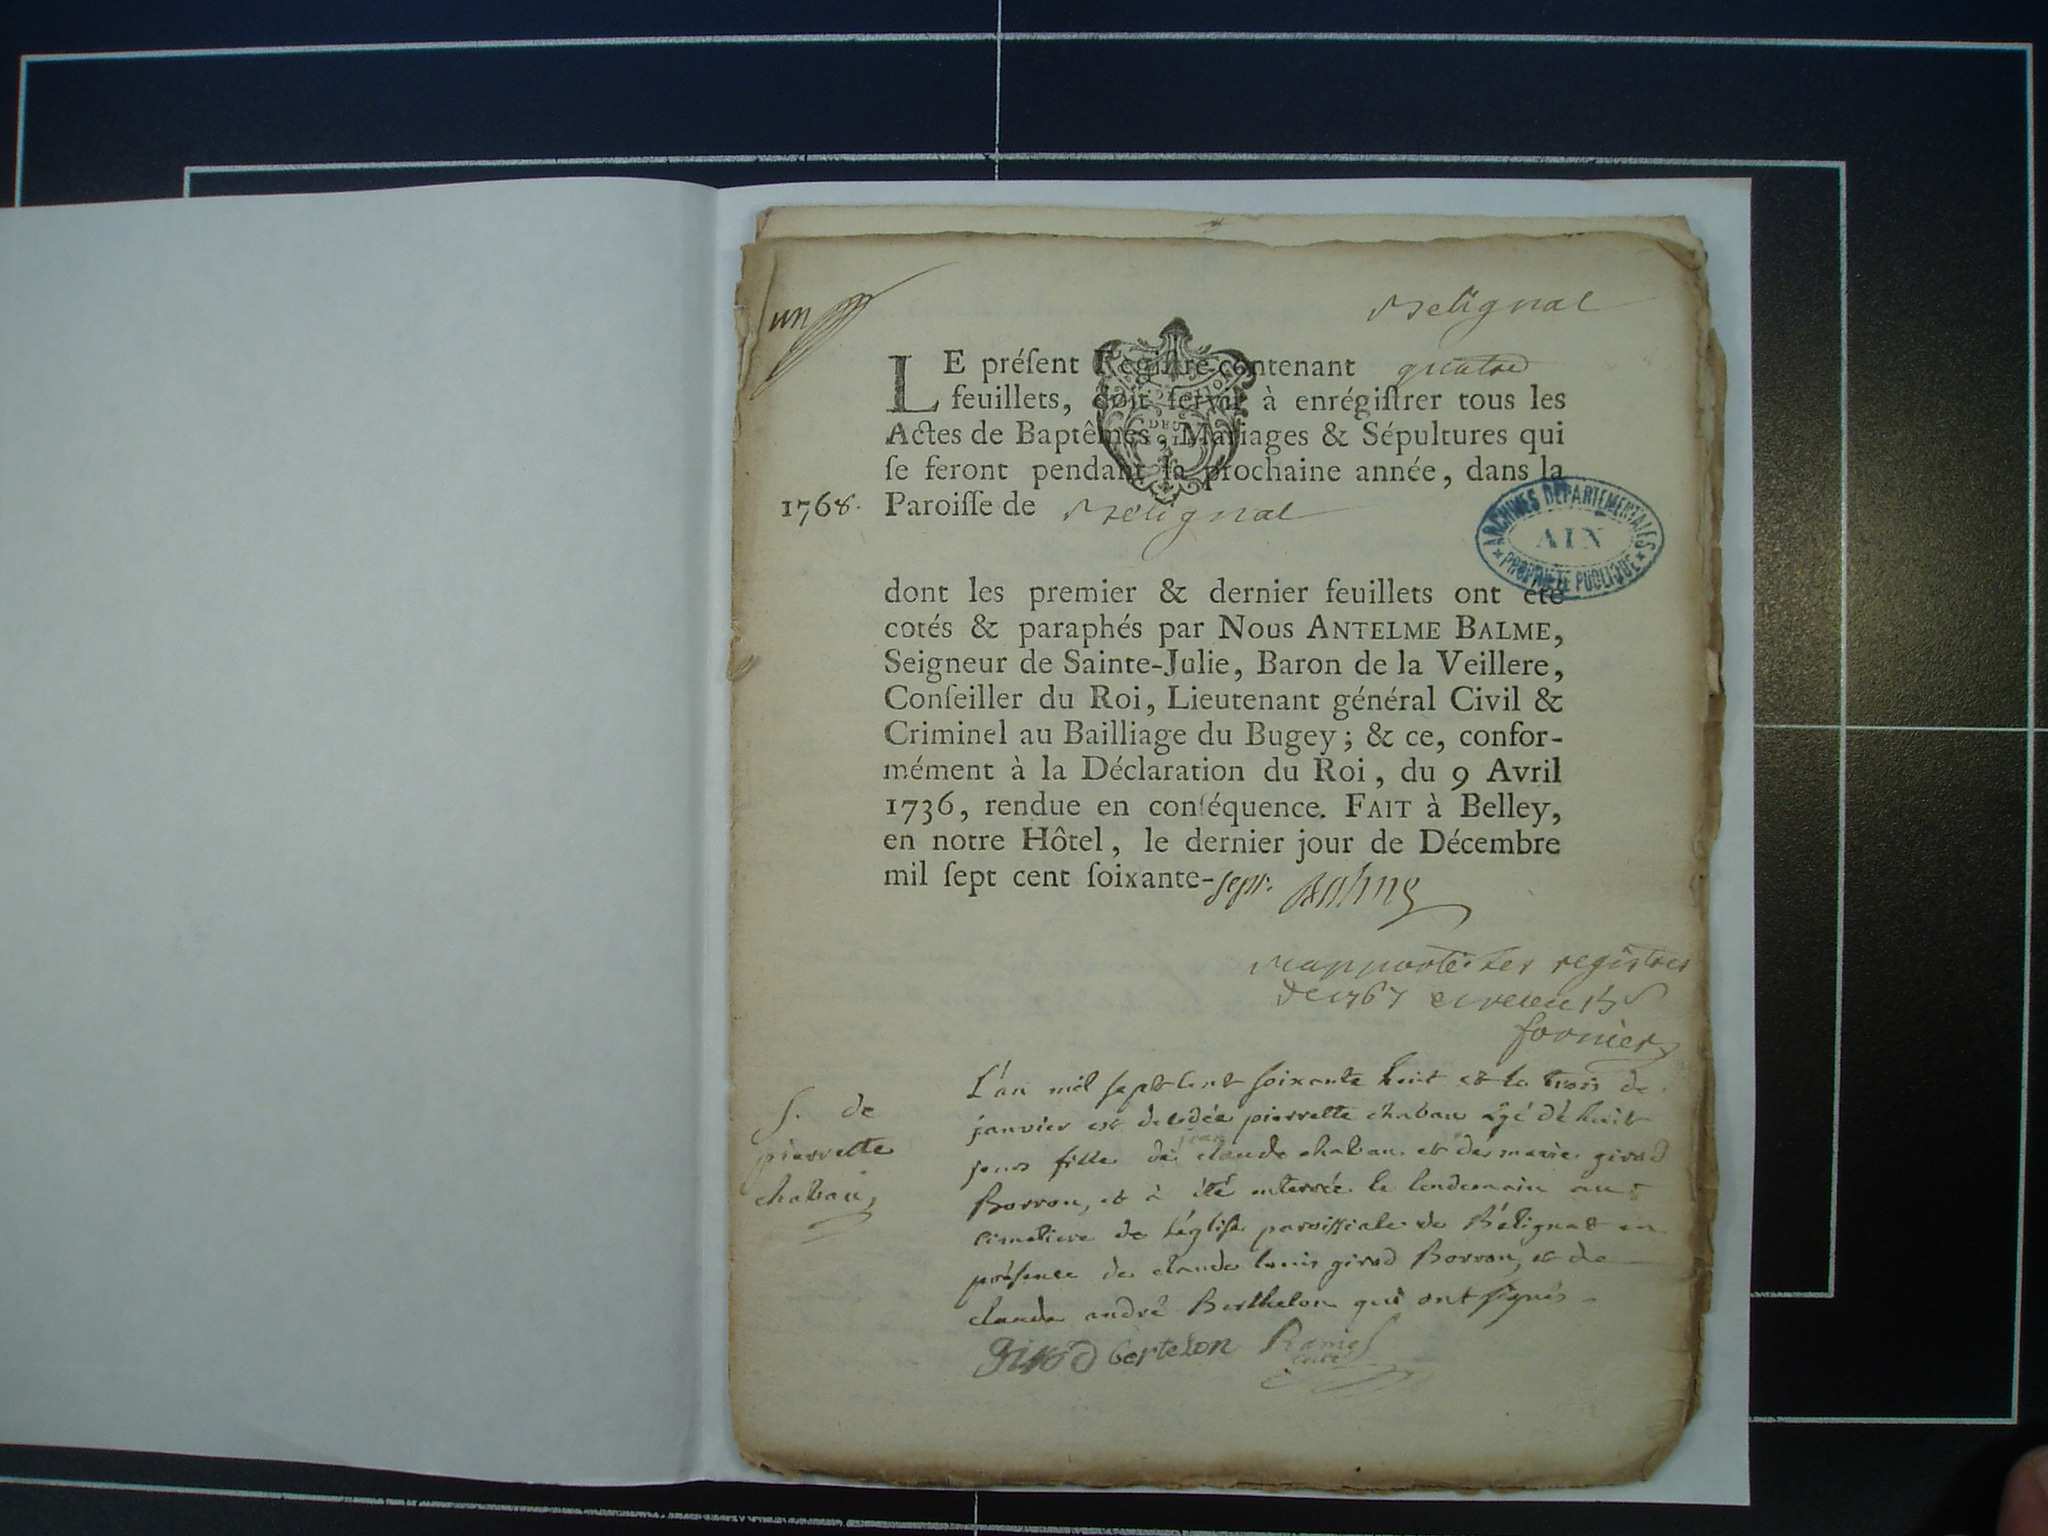 un
Belignat
LE préſent Regiſtre contenant quatre
feuillets, doit ſervir à enrégiſtrer tous les
Actes de Baptêmes, Mariages & Sépultures qui
ſe feront pendant la prochaine année, dans la
1768. Paroiſſe de Belignat
ARCHIVES DÉPARTEMENTALES
AIN
PROPRIÉTÉ PUBLIQUE
dont les premier & dernier feuillets ont été
cotés & paraphés par NOUS ANTELME BALME,
Seigneur de Sainte-Julie, Baron de la Veillere,
Conſeiller du Roi, Lieutenant général Civil &
Criminel au Bailliage du Bugey; & ce, confor-
mément à la Déclaration du Roi, du 9 Avril
1736, rendue en conſéquence. FAIT à Belley,
en notre Hôtel, le dernier jour de Décembre
mil ſept cent ſoixante-sept. Balme
rapporté les registres
de 1767
fornier
S. de
pierrette
chaban
L'an mil sept cent soixante huit et le trois de
janvier est decedée pierrette chaban agé de huit
jours fille de jean claude chaban et de marie girod
Borron, et à été enterrée le lendemain au
cimetiere de l'église paroissiale de Bélignat en
présence de claude louis girod Borron, et de
claude andré Berthelon qui ont signés
Girod bertelon Ramel
curé